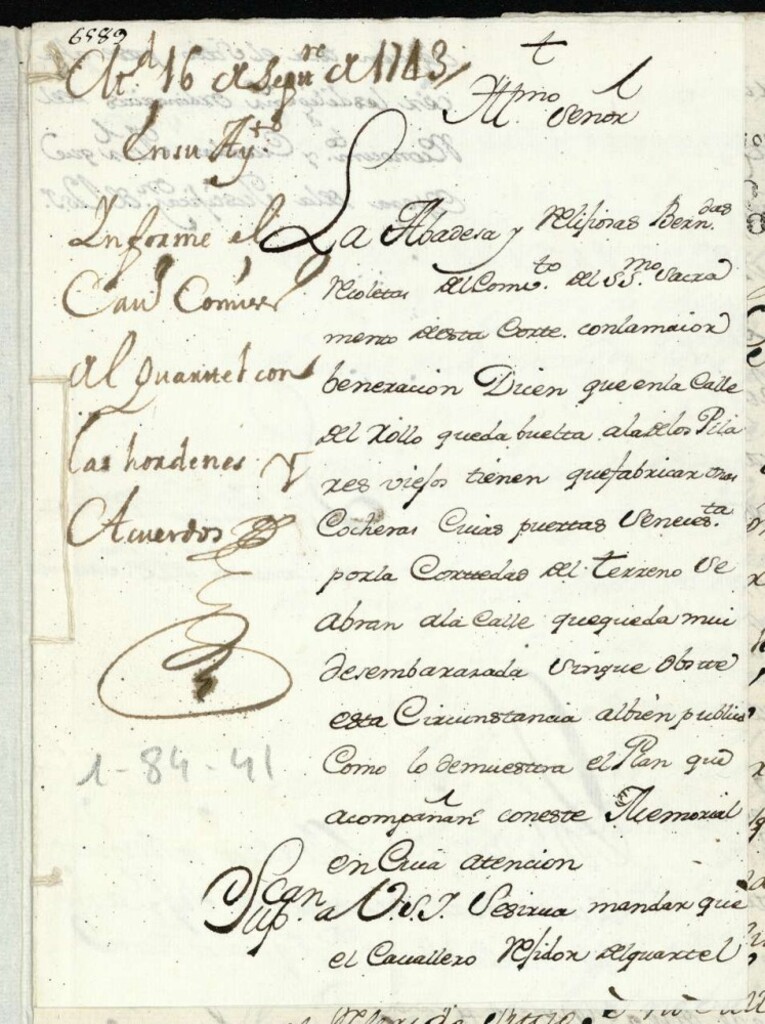 6989
M.d 16 de Sepre de 1743
En su Ay.to
Informe el
Cauo Comiss
al Quartel con
las hordenes y
Acuerdos
1-84-41
†
Yll.mo Señor
La Abadesa y Relijiosas Bern.das
Recoletas del Comv.to del SS.mo Sacra
mento de esta Corte. con la maior
beneracion Dicen que en la Calle
del Rollo que da buelta a la de los Pila
res viejos tienen que fabricar unas
Cocheras Cuias puertas Se neces.ta
por la Cortedad del terreno Se
abran a la Calle que queda mui
desembarazada sin que obste
esta Circunstancia al bien publico
Como lo demuestra el Plan que
acompañan con este Memorial
en Cuia atencion
Sup.can a V.S.I. Se sirva mandar que
el Cavallero Rejidor del quartel